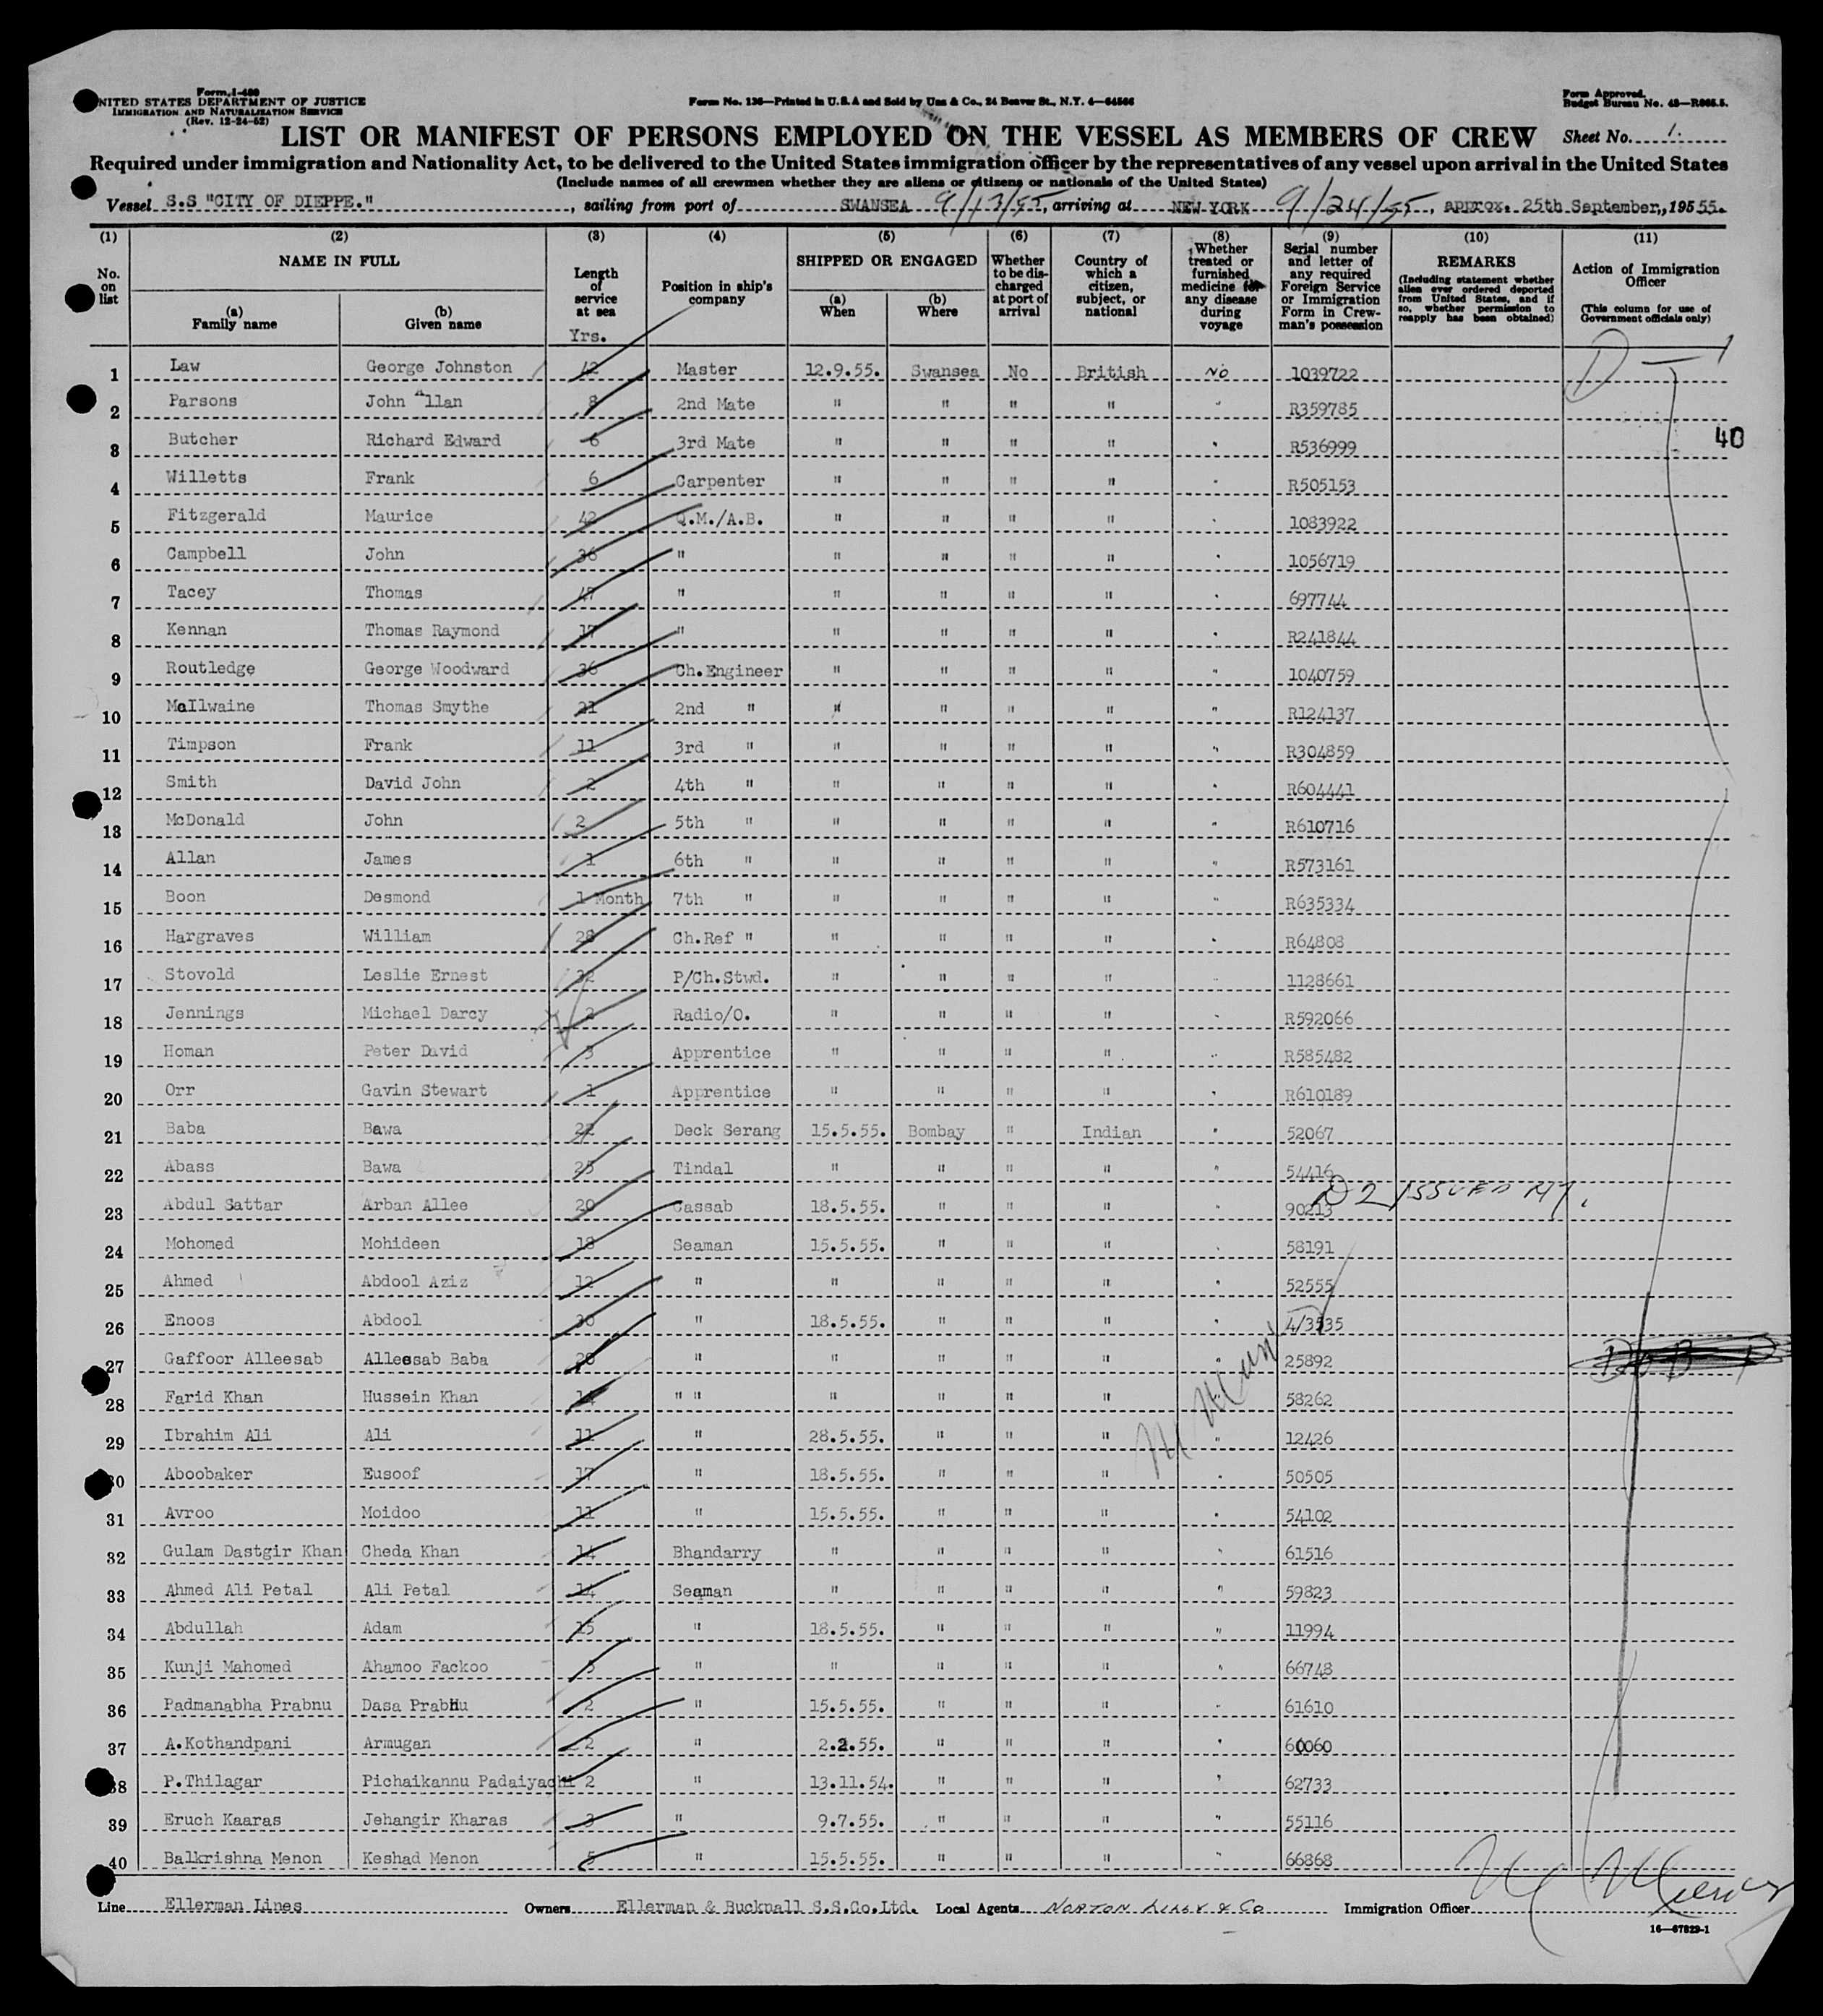 Form I-489
UNITED STATES DEPARTMENT OF JUSTICE
IMMIGRATION AND NATURALIZATION SERVICE
(Rev. 12-24-52)
Form No. 136—Printed in U.S.A and Sold by Unz & Co., 24 Beaver St., N.Y. 4—64566
Form Approved.
Budget Bureau No. 43—R065.5.
LIST OR MANIFEST OF PERSONS EMPLOYED ON THE VESSEL AS MEMBERS OF CREW Sheet No. 1.
Required under immigration and Nationality Act, to be delivered to the United States immigration officer by the representatives of any vessel upon arrival in the United States
(Include names of all crewmen whether they are aliens or citizens or nationals of the United States)
Vessel S.S "CITY OF DIEPPE.", sailing from port of SWANSEA 9/13/55, arriving at NEW YORK 9/24/55, approx. 25th September., 195 55.
(1) (2) (3) (4) (5) (6) (7) (8) (9) (10) (11)
No. on list
NAME IN FULL
(a) Family name
(b) Given name
Length of service at sea
Yrs.
Position in ship's company
SHIPPED OR ENGAGED
(a) When
(b) Where
Whether to be discharged at port of arrival
Country of which a citizen, subject, or national
Whether treated or furnished medicine for any disease during voyage
Serial number and letter of any required Foreign Service or Immigration Form in Crewman's possession
REMARKS
(Including statement whether alien ever ordered deported from United States, and if so, whether permission to reapply has been obtained)
Action of Immigration Officer
(This column for use of Government officials only)
1 Law George Johnston 42 Master 12.9.55. Swansea No British No 1039722 D - 1
2 Parsons John Allan 8 2nd Mate " " " " " R359785
3 Butcher Richard Edward 6 3rd Mate " " " " " R536999 40
4 Willetts Frank 6 Carpenter " " " " " R505153
5 Fitzgerald Maurice 42 Q.M./A.B. " " " " " 1083922
6 Campbell John 36 " " " " " " 1056719
7 Tacey Thomas 47 " " " " " " 697744
8 Kennan Thomas Raymond 17 " " " " " " R241844
9 Routledge George Woodward 36 Ch.Engineer " " " " " 1040759
10 McIlwaine Thomas Smythe 21 2nd " " " " " " R124137
11 Timpson Frank 11 3rd " " " " " " R304859
12 Smith David John 2 4th " " " " " " R604441
13 McDonald John 2 5th " " " " " " R610716
14 Allan James 1 6th " " " " " " R573161
15 Boon Desmond 1 Month 7th " " " " " " R635334
16 Hargraves William 28 Ch.Ref " " " " " " R64808
17 Stovold Leslie Ernest 32 P/Ch.Stwd. " " " " " 1128661
18 Jennings Michael Darcy 2 Radio/O. " " " " " R592066
19 Homan Peter David 3 Apprentice " " " " " R585482
20 Orr Gavin Stewart 1 Apprentice " " " " " R610189
21 Baba Bawa 22 Deck Serang 15.5.55. Bombay " Indian " 52067
22 Abass Bawa 25 Tindal " " " " " 54416
D 2 ISSUED NY.
23 Abdul Sattar Arban Allee 20 Cassab 18.5.55. " " " " 90213
24 Mohomed Mohideen 18 Seaman 15.5.55. " " " " 58191
25 Ahmed Abdool Aziz 12 " " " " " " 52555
26 Enoos Abdool 30 " 18.5.55. " " " " 4/3535
27 Gaffoor Alleesab Alleesab Baba 20 " " " " " " 25892
28 Farid Khan Hussein Khan 14 " " " " " " " 58262
29 Ibrahim Ali Ali 11 " 28.5.55. " " " " 12426
30 Aboobaker Eusoof 17 " 18.5.55. " " " " 50505
31 Avroo Moidoo 11 " 15.5.55. " " " " 54102
32 Gulam Dastgir Khan Cheda Khan 14 Bhandarry " " " " " 61516
33 Ahmed Ali Petal Ali Petal 14 Seaman " " " " " 59823
34 Abdullah Adam 15 " 18.5.55. " " " " 11994
35 Kunji Mahomed Ahamoo Fackoo 5 " " " " " " 66748
36 Padmanabha Prabnu Dasa Prabhu 2 " 15.5.55. " " " " 61610
37 A.Kothandpani Armugan 2 " 2.2.55. " " " " 60060
38 P.Thilagar Pichaikannu Padaiyachi 2 " 13.11.54. " " " " 62733
39 Eruch Kaaras Jehangir Kharas 3 " 9.7.55. " " " " 55116
40 Balkrishna Menon Keshad Menon 5 " 15.5.55. " " " " 66868
Line Ellerman Lines Owners Ellerman & Bucknall S.S.Co.Ltd. Local Agents NORTON LILLY & CO Immigration Officer
16—67829-1